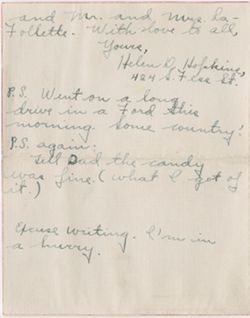 and Mr. and Mrs. La-
Follette. With love to all,
Yours,
Helen D. Hopkins,
424 S. Fess St.
P.S. Went on a long
drive in a Ford this
morning. Some country!
P.S. again:
Tell Dad the candy
was fine. (What I got of
it.)
Excuse writing. I'm in
a hurry.